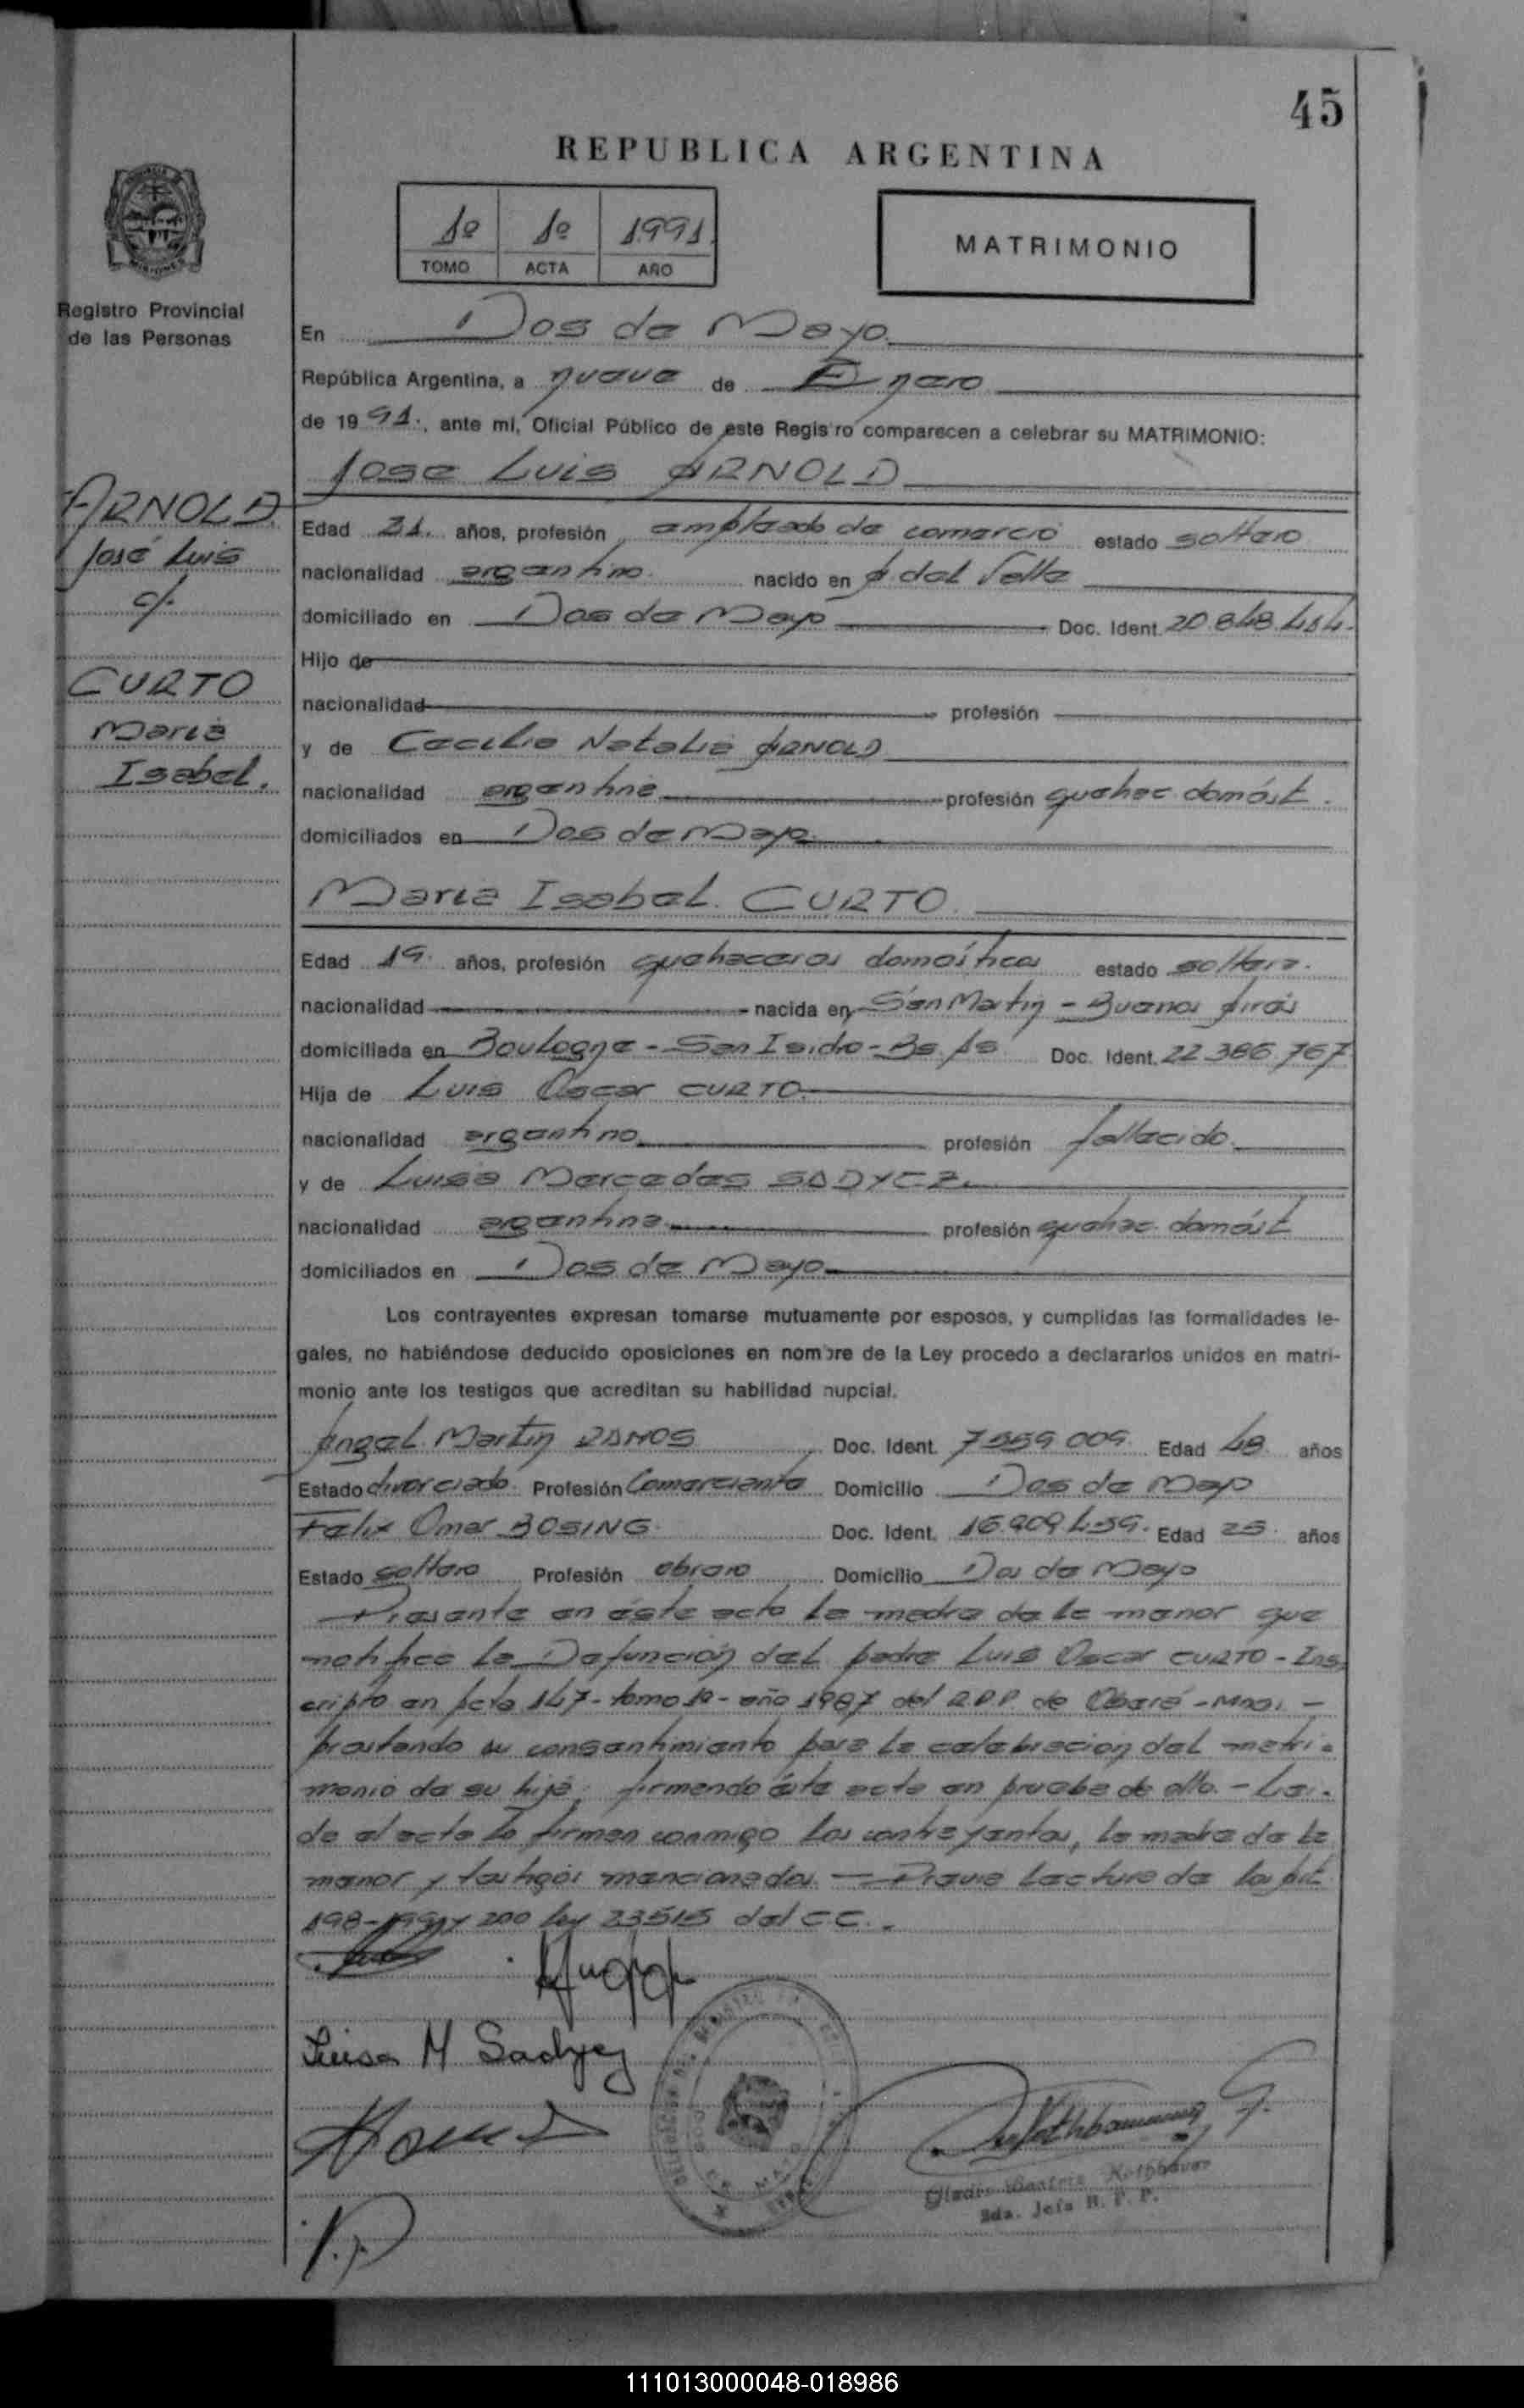 45
REPUBLICA ARGENTINA
1º 1º 1991
TOMO ACTA AÑO
MATRIMONIO
Registro Provincial
de las Personas
En Dos de Mayo
República Argentina, a nueve de Enero
de 1991., ante mí, Oficial Público de este Registro comparecen a celebrar su MATRIMONIO:
Jose Luis ARNOLD
ARNOLD
José Luis
c/.
CURTO
Maria
Isabel.
Edad 21. años, profesión empleado de comercio estado soltero
nacionalidad argentino. nacido en A. del Valle
domiciliado en Dos de Mayo Doc. Ident. 20.848.484.
Hijo de
nacionalidad profesión
y de Cecilia Natalia ARNOLD
nacionalidad argentina profesión quehac domést.
domiciliados en Dos de Mayo.
Maria Isabel. CURTO.
Edad 19. años, profesión quehaceres domésticos estado soltera.
nacionalidad nacida en San Martin - Buenos Aires
domiciliada en Boulogne - San Isidro - Bs. As. Doc. Ident. 22.386.767
Hija de Luis Oscar CURTO
nacionalidad argentino profesión fallecido.
y de Luisa Mercedes SADYEZ.
nacionalidad argentina profesión quehac. domést
domiciliados en Dos de Mayo
Los contrayentes expresan tomarse mutuamente por esposos, y cumplidas las formalidades le-
gales, no habiéndose deducido oposiciones en nombre de la Ley procedo a declararlos unidos en matri-
monio ante los testigos que acreditan su habilidad nupcial.
Angel Martin RAMOS Doc. Ident. 7.559.009. Edad 48. años
Estado divorciado. Profesión Comerciante Domicilio Dos de Mayo
Felix Omar BOSING. Doc. Ident. 16.909.459. Edad 25. años
Estado soltero Profesión obrero Domicilio Dos de Mayo
Presente en éste acto la madre de la menor que
notifica la Defunción del padre Luis Oscar CURTO - Ins-
cripto en Acta 147 - tomo 1º - año 1987 del R.P.P. de Oberá - Mnes. -
prestando su consentimiento para la celebracion del matri-
monio de su hija, firmando ésta acta en prueba de ello. - Leí-
da el acta la firman conmigo los contrayentes, la madre de la
menor y testigos mencionados. - Previa Lectura de los Art.
198-199 y 200 ley 23515 del C.C..
Luisa M Sadyez
Gladis Beatriz
Jefa R. P. P.
111013000048-018986